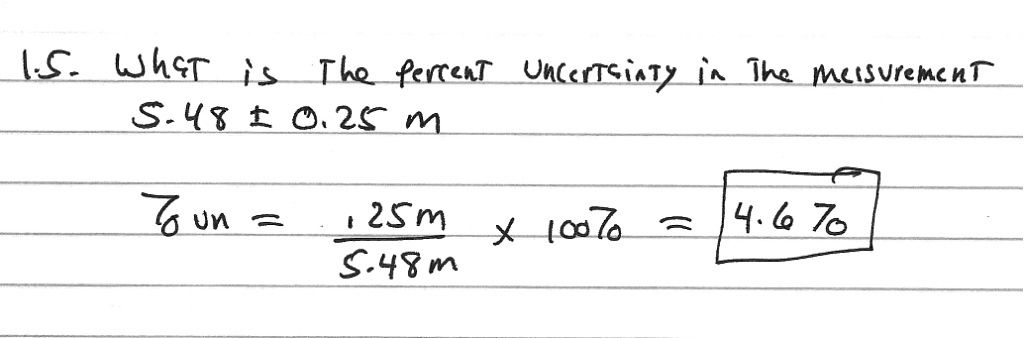 1.5. What is The percent Uncertainty in The measurement
5.48 ± 0.25 m
% un = .25m / 5.48m x 100% = 4.6%